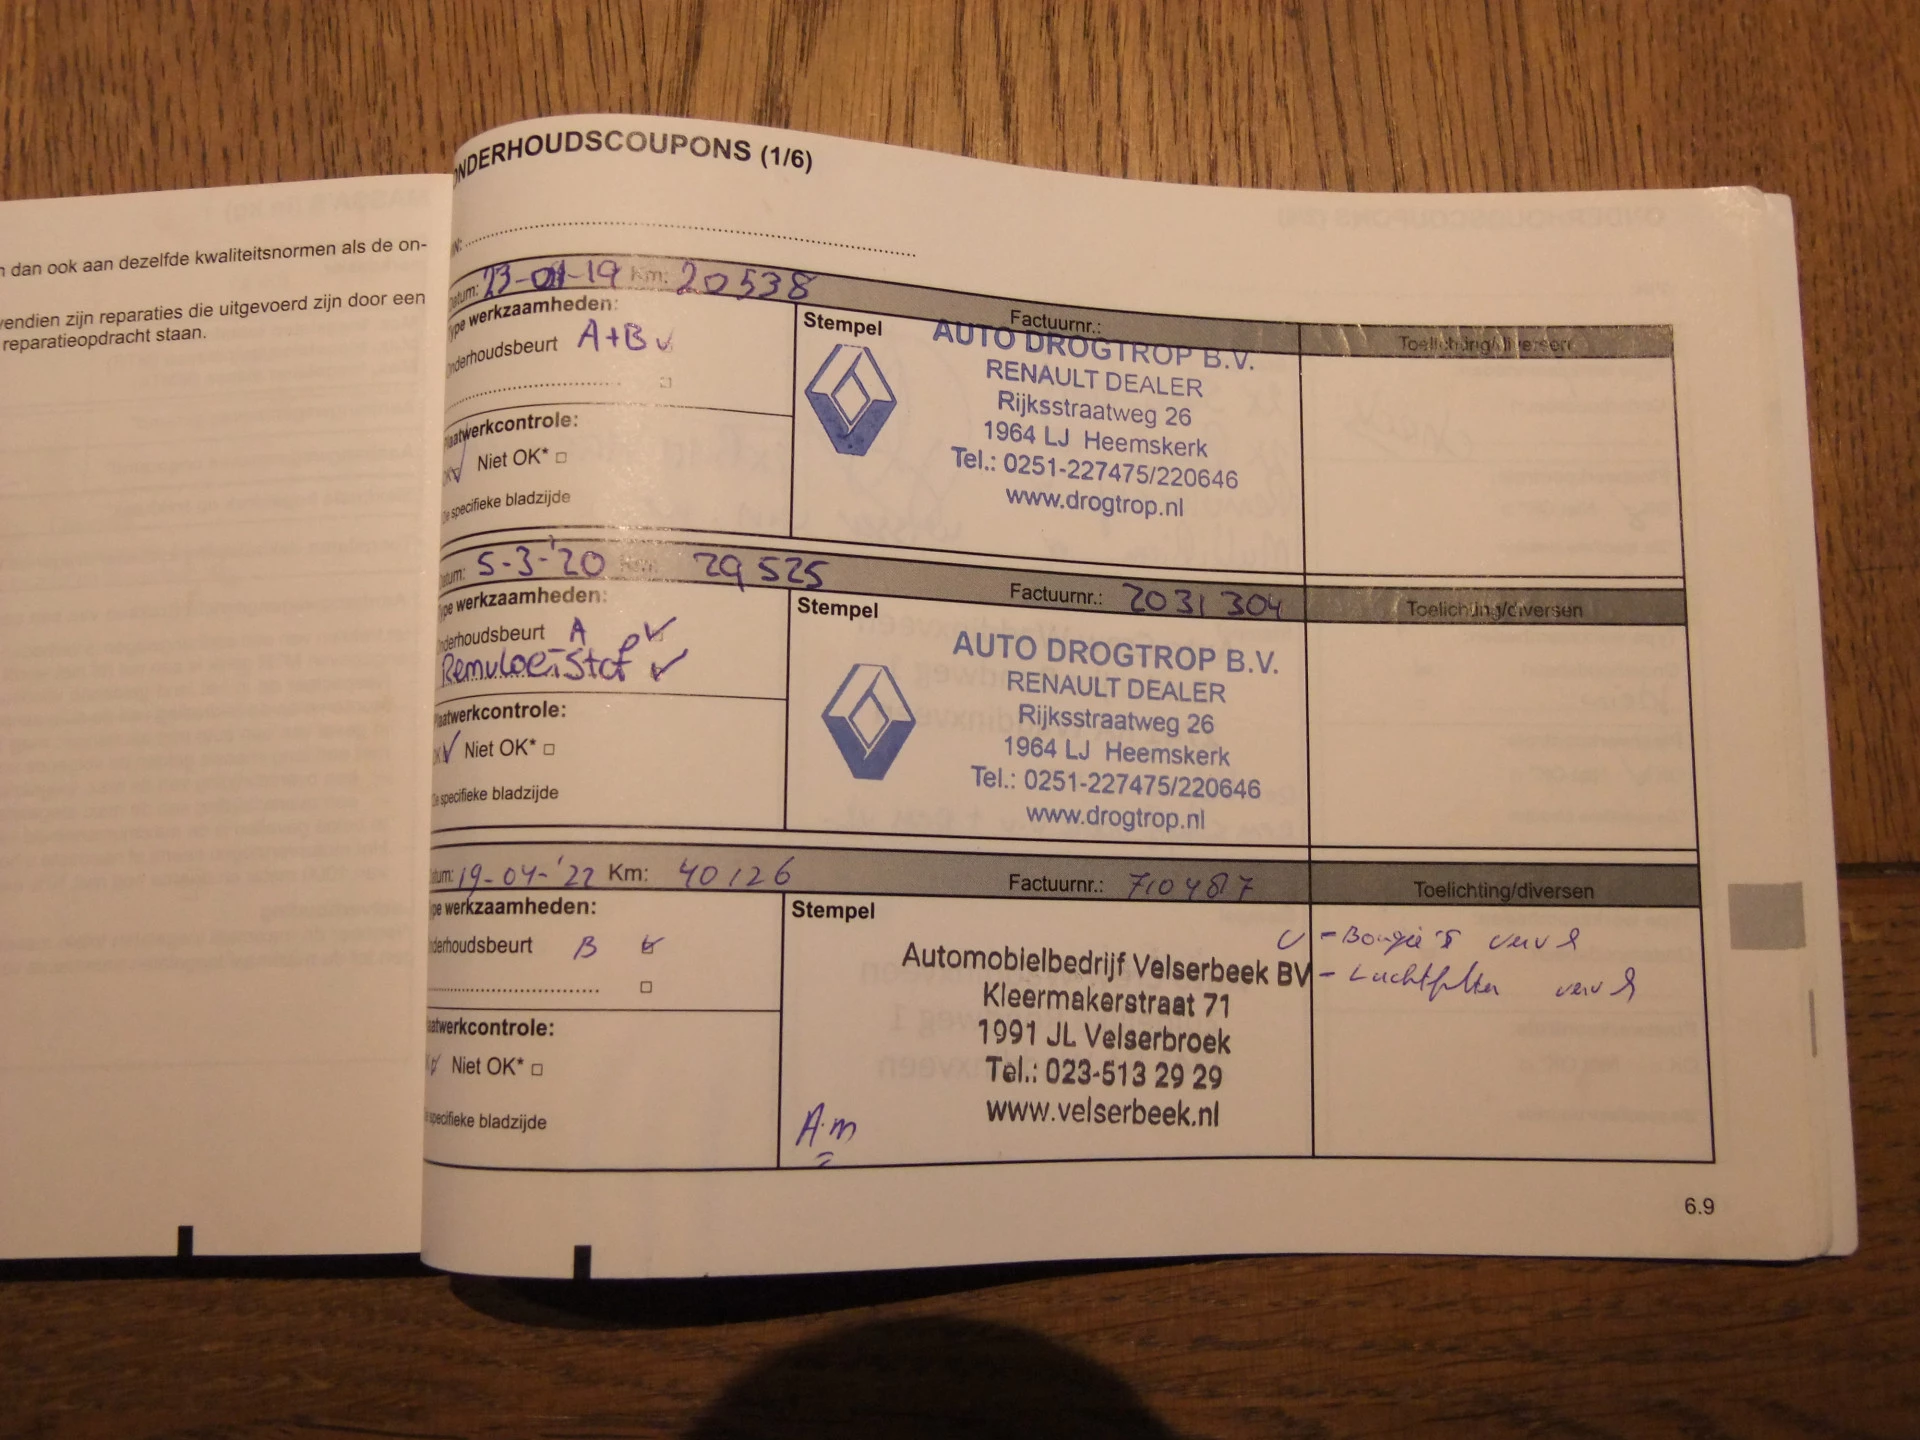 n dan ook aan dezelfde kwaliteitsnormen als de on-
vendien zijn reparaties die uitgevoerd zijn door een
reparatieopdracht staan.
ONDERHOUDSCOUPONS (1/6)
IN:
atum: 23-01-19 Km: 20538
Factuurnr.:
Toelichting/diversen
ype werkzaamheden:
nderhoudsbeurt A+B
Stempel
AUTO DROGTROP B.V.
RENAULT DEALER
Rijksstraatweg 26
1964 LJ Heemskerk
Tel.: 0251-227475/220646
www.drogtrop.nl
laatwerkcontrole:
OK Niet OK* □
De specifieke bladzijde
atum: 5-3-'20 Km: 29525
Factuurnr.: 2031304
Toelichting/diversen
ype werkzaamheden:
nderhoudsbeurt A
Remvloeistof
Stempel
AUTO DROGTROP B.V.
RENAULT DEALER
Rijksstraatweg 26
1964 LJ Heemskerk
Tel.: 0251-227475/220646
www.drogtrop.nl
laatwerkcontrole:
OK Niet OK* □
De specifieke bladzijde
tum: 19-04-'22 Km: 40126
Factuurnr.: 7104817
Toelichting/diversen
pe werkzaamheden:
nderhoudsbeurt B
Stempel
Automobielbedrijf Velserbeek BV
Kleermakerstraat 71
1991 JL Velserbroek
Tel.: 023-513 29 29
www.velserbeek.nl
A.m
- Bougie's
- Luchtfilter
aatwerkcontrole:
Niet OK* □
specifieke bladzijde
6.9